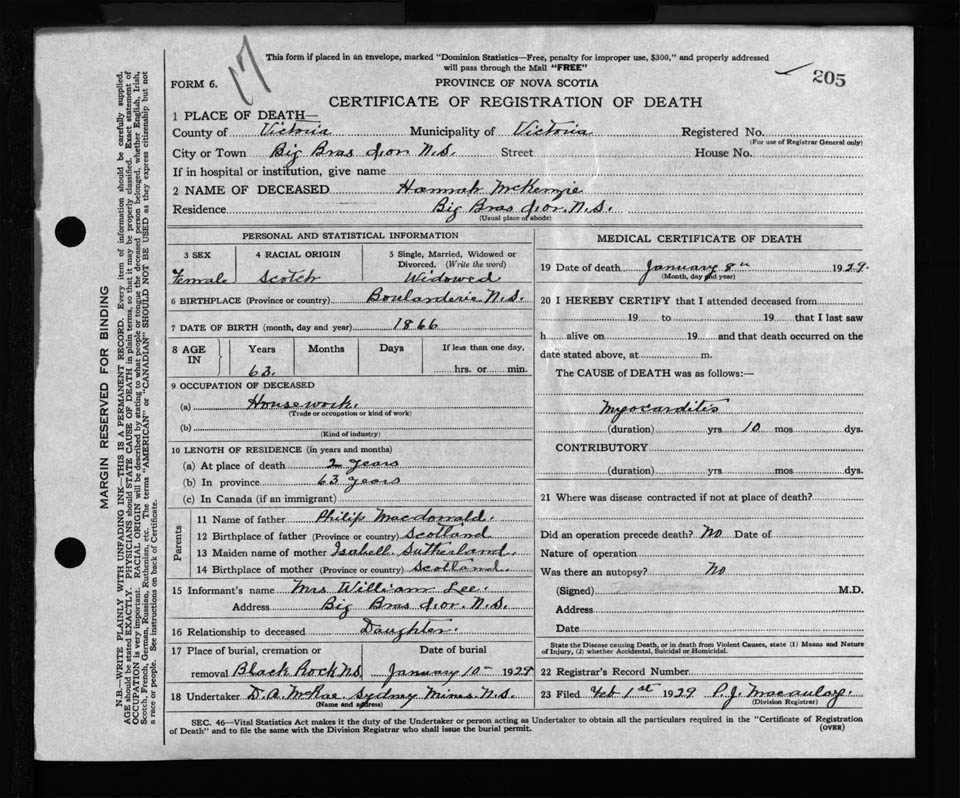 This form if placed in an envelope, marked "Dominion Statistics—Free, penalty for improper use, $300," and properly addressed
will pass through the Mail "FREE"
17
205
FORM 6.
PROVINCE OF NOVA SCOTIA
CERTIFICATE OF REGISTRATION OF DEATH
1 PLACE OF DEATH—
County of Victoria Municipality of Victoria Registered No.
(For use of Registrar General only)
City or Town Big Bras d'or N.S. Street House No.
If in hospital or institution, give name
2 NAME OF DECEASED Hannah McKenzie
Residence Big Bras d'or. N.S.
(Usual place of abode)
PERSONAL AND STATISTICAL INFORMATION
3 SEX 4 RACIAL ORIGIN 5 Single, Married, Widowed or
Divorced. (Write the word)
Female Scotch Widowed
6 BIRTHPLACE (Province or country) Boularderie N.S.
7 DATE OF BIRTH (month, day and year) 1866
8 AGE IN Years Months Days If less than one day,
63. hrs. or min.
9 OCCUPATION OF DECEASED
(a) Housework.
(Trade or occupation or kind of work)
(b)
(Kind of industry)
10 LENGTH OF RESIDENCE (in years and months)
(a) At place of death 2 years
(b) In province 63 years
(c) In Canada (if an immigrant)
Parents
11 Name of father Philip Macdonald.
12 Birthplace of father (Province or country) Scotland
13 Maiden name of mother Isabell Sutherland.
14 Birthplace of mother (Province or country) Scotland.
15 Informant's name Mrs William Lee.
Address Big Bras d'or N.S.
16 Relationship to deceased Daughter.
17 Place of burial, cremation or Date of burial
removal Black Rock N.S. January 10th 1929
18 Undertaker D. A. McRae. Sydney Mines. N.S.
(Name and address)
MEDICAL CERTIFICATE OF DEATH
19 Date of death January 8th 1929.
(Month, day and year)
20 I HEREBY CERTIFY that I attended deceased from
19 to 19 that I last saw
h alive on 19 and that death occurred on the
date stated above, at m.
The CAUSE of DEATH was as follows:—
Myocarditis
(duration) yrs 10 mos dys.
CONTRIBUTORY
(duration) yrs mos dys.
21 Where was disease contracted if not at place of death?
Did an operation precede death? No Date of
Nature of operation
Was there an autopsy? No
(Signed) M.D.
Address
Date
State the Disease causing Death, or in death from Violent Causes, state (1) Means and Nature
of Injury, (2) whether Accidental, Suicidal or Homicidal.
22 Registrar's Record Number
23 Filed Feb 1st 1929 P. J. Macaulay.
(Division Registrar)
SEC. 46—Vital Statistics Act makes it the duty of the Undertaker or person acting as Undertaker to obtain all the particulars required in the "Certificate of Registration
of Death" and to file the same with the Division Registrar who shall issue the burial permit.
(OVER)
MARGIN RESERVED FOR BINDING
N.B.—WRITE PLAINLY WITH UNFADING INK—THIS IS A PERMANENT RECORD. Every item of information should be carefully supplied.
AGE should be stated EXACTLY. PHYSICIANS should STATE CAUSE OF DEATH in plain terms, so that it may be properly classified. Exact statement of
OCCUPATION is very important. RACIAL ORIGIN will be described by stating to what people or tongue the deceased person belonged, whether English, Irish,
Scotch, French, German, Russian, Ruthenian, etc. The terms "AMERICAN" or "CANADIAN" SHOULD NOT BE USED as they express citizenship but not
a race or people. See instructions on back of Certificate.